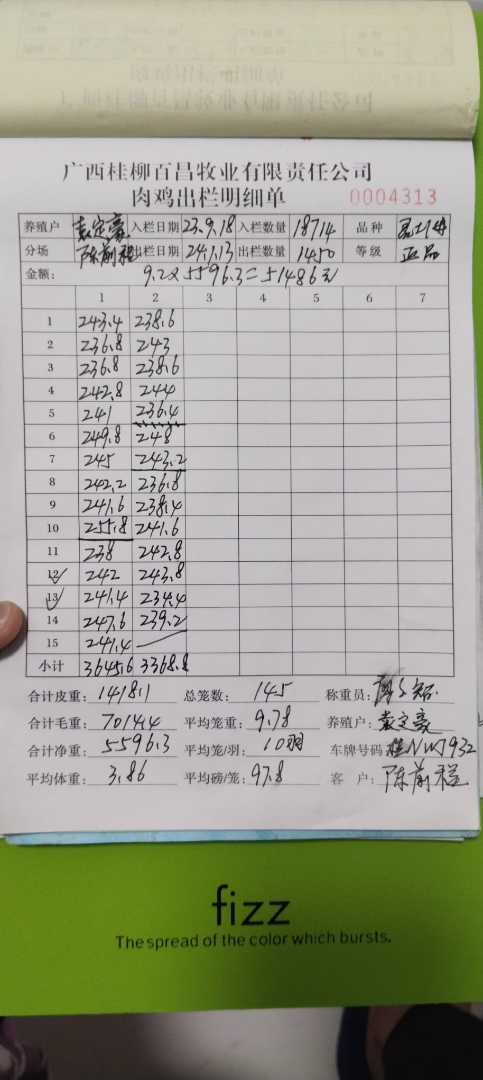 广西桂柳百昌牧业有限责任公司
肉鸡出栏明细单 0004313
养殖户 袁定豪 入栏日期 23.9.18 入栏数量 18714 品种
分场 陈前程 出栏日期 24.1.13 出栏数量 1450 等级 正品
金额: 9.2×5596.3=51486元
1 2 3 4 5 6 7
1 243.4 238.6
2 236.8 243
3 236.8 238.6
4 242.8 244
5 241 236.4
6 249.8 248
7 245 243.2
8 242.2 236.8
9 241.6 238.4
10 255.8 241.6
11 238 242.8
12 242 243.8
13 241.4 234.4
14 247.6 239.2
15 241.4
小计 3645.6 3368.8
合计皮重: 1418.1 总笼数: 145 称重员:
合计毛重: 7014.4 平均笼重: 9.78 养殖户: 袁定豪
合计净重: 5596.3 平均笼/羽: 10羽 车牌号码: 桂NWJ932
平均体重: 3.86 平均磅/笼: 97.8 客户: 陈前程
fizz
The spread of the color which bursts.